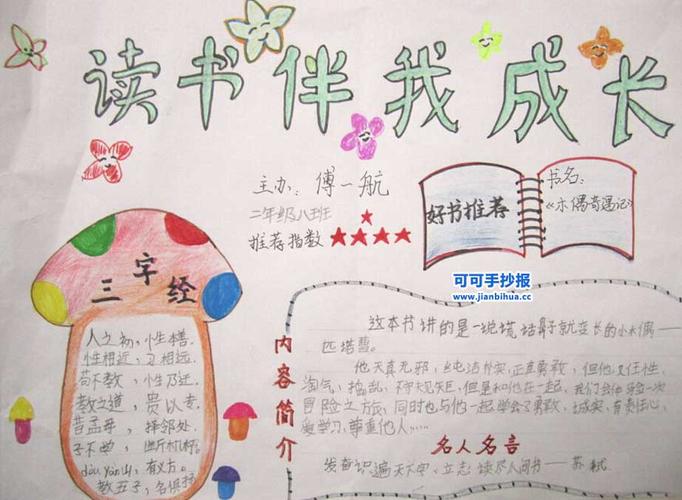 读书伴我成长
主办：傅一航
二年级八班
推荐指数
好书推荐
书名：
《木偶奇遇记》
可可手抄报
www.jianbihua.cc
三字经
人之初，性本善。
性相近，习相远。
苟不教，性乃迁。
教之道，贵以专。
昔孟母，择邻处。
子不学，断机杼。
dòu yān山，有义方。
教五子，名俱扬
内容简介
这本书讲的是一说谎话鼻子就变长的小木偶——
匹诺曹。
他天真无邪，纯洁朴实，正直勇敢，但他又任性，
淘气，捣乱，不守规矩，但是和他在一起，我们会体验一次
冒险之旅，同时也与他一起学会了勇敢，诚实，有责任心，
爱学习，尊重他人……
名人名言
发奋识遍天下字，立志读尽人间书——苏轼